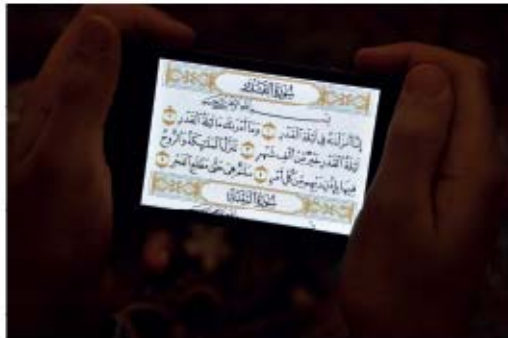 سُورَةُ القَدْرِ
بِسْمِ اللَّهِ الرَّحْمَٰنِ الرَّحِيمِ
إِنَّا أَنزَلْنَاهُ فِي لَيْلَةِ القَدْرِ ١ وَمَا أَدْرَاكَ مَا لَيْلَةُ القَدْرِ ٢
لَيْلَةُ القَدْرِ خَيْرٌ مِّنْ أَلْفِ شَهْرٍ ٣ تَنَزَّلُ المَلَائِكَةُ وَالرُّوحُ
فِيهَا بِإِذْنِ رَبِّهِم مِّن كُلِّ أَمْرٍ ٤ سَلَامٌ هِيَ حَتَّىٰ مَطْلَعِ الفَجْرِ ٥
سُورَةُ البَيِّنَةِ